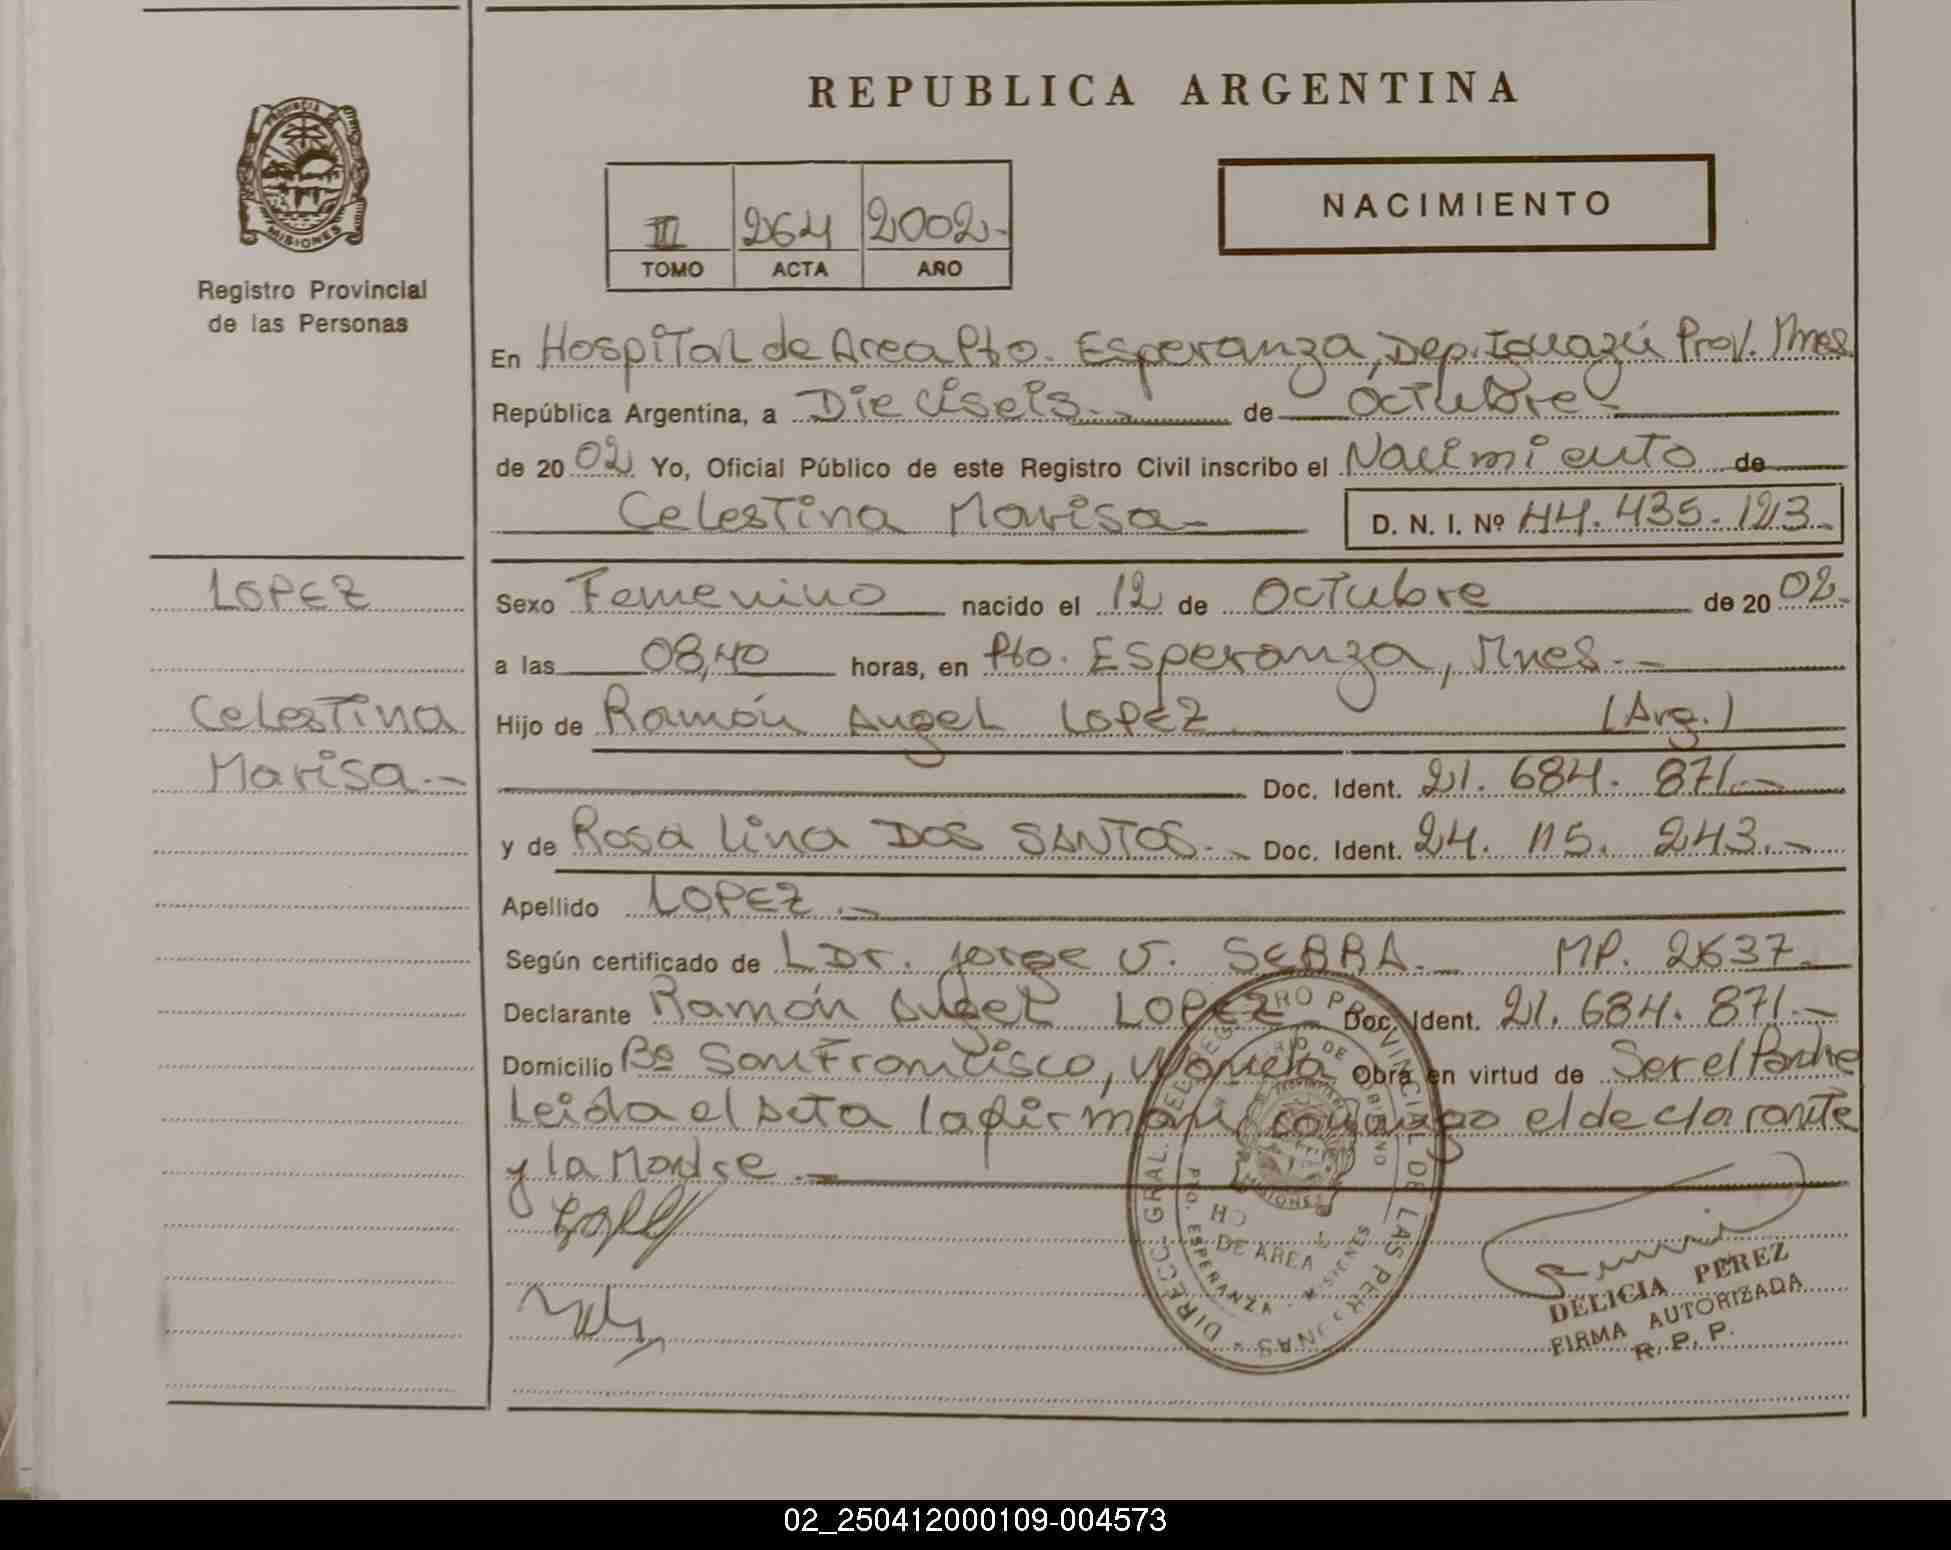 REPUBLICA ARGENTINA
PROVINCIA MISIONES
Registro Provincial
de las Personas
III 264 2002.-
TOMO ACTA AÑO
NACIMIENTO
En Hospital de Area Pto. Esperanza, Dep. Iguazú Prov. Mnes
República Argentina, a Dieciseis.- de Octubre-
de 20 02 Yo, Oficial Público de este Registro Civil inscribo el Nacimiento de
Celestina Marisa- D. N. I. Nº 44.435.123.-
LOPEZ
Celestina
Marisa.-
Sexo Femenino nacido el 12 de Octubre de 20 02.-
a las 08,40 horas, en Pto. Esperanza, Mnes.-
Hijo de Ramón Angel LOPEZ (Arg.)
Doc. Ident. 21.684.871.-
y de Rosa Lina DOS SANTOS.- Doc. Ident. 24.115.243.-
Apellido LOPEZ.-
Según certificado de Dr. Jorge SERRA.- MP. 2637.-
Declarante Ramón Angel LOPEZ Doc. Ident. 21.684.871.-
Domicilio Bº San Francisco, Wanda Obra en virtud de Ser el Padre
Leida el Acta la firman conmigo el declarante
y la Madre.-
DIRECC. GRAL. DEL REGISTRO PROVINCIAL DE LAS PERSONAS
MISIONES
DE AREA
PTO. ESPERANZA - MISIONES
DELICIA PEREZ
FIRMA AUTORIZADA
R. P. P.
02_250412000109-004573